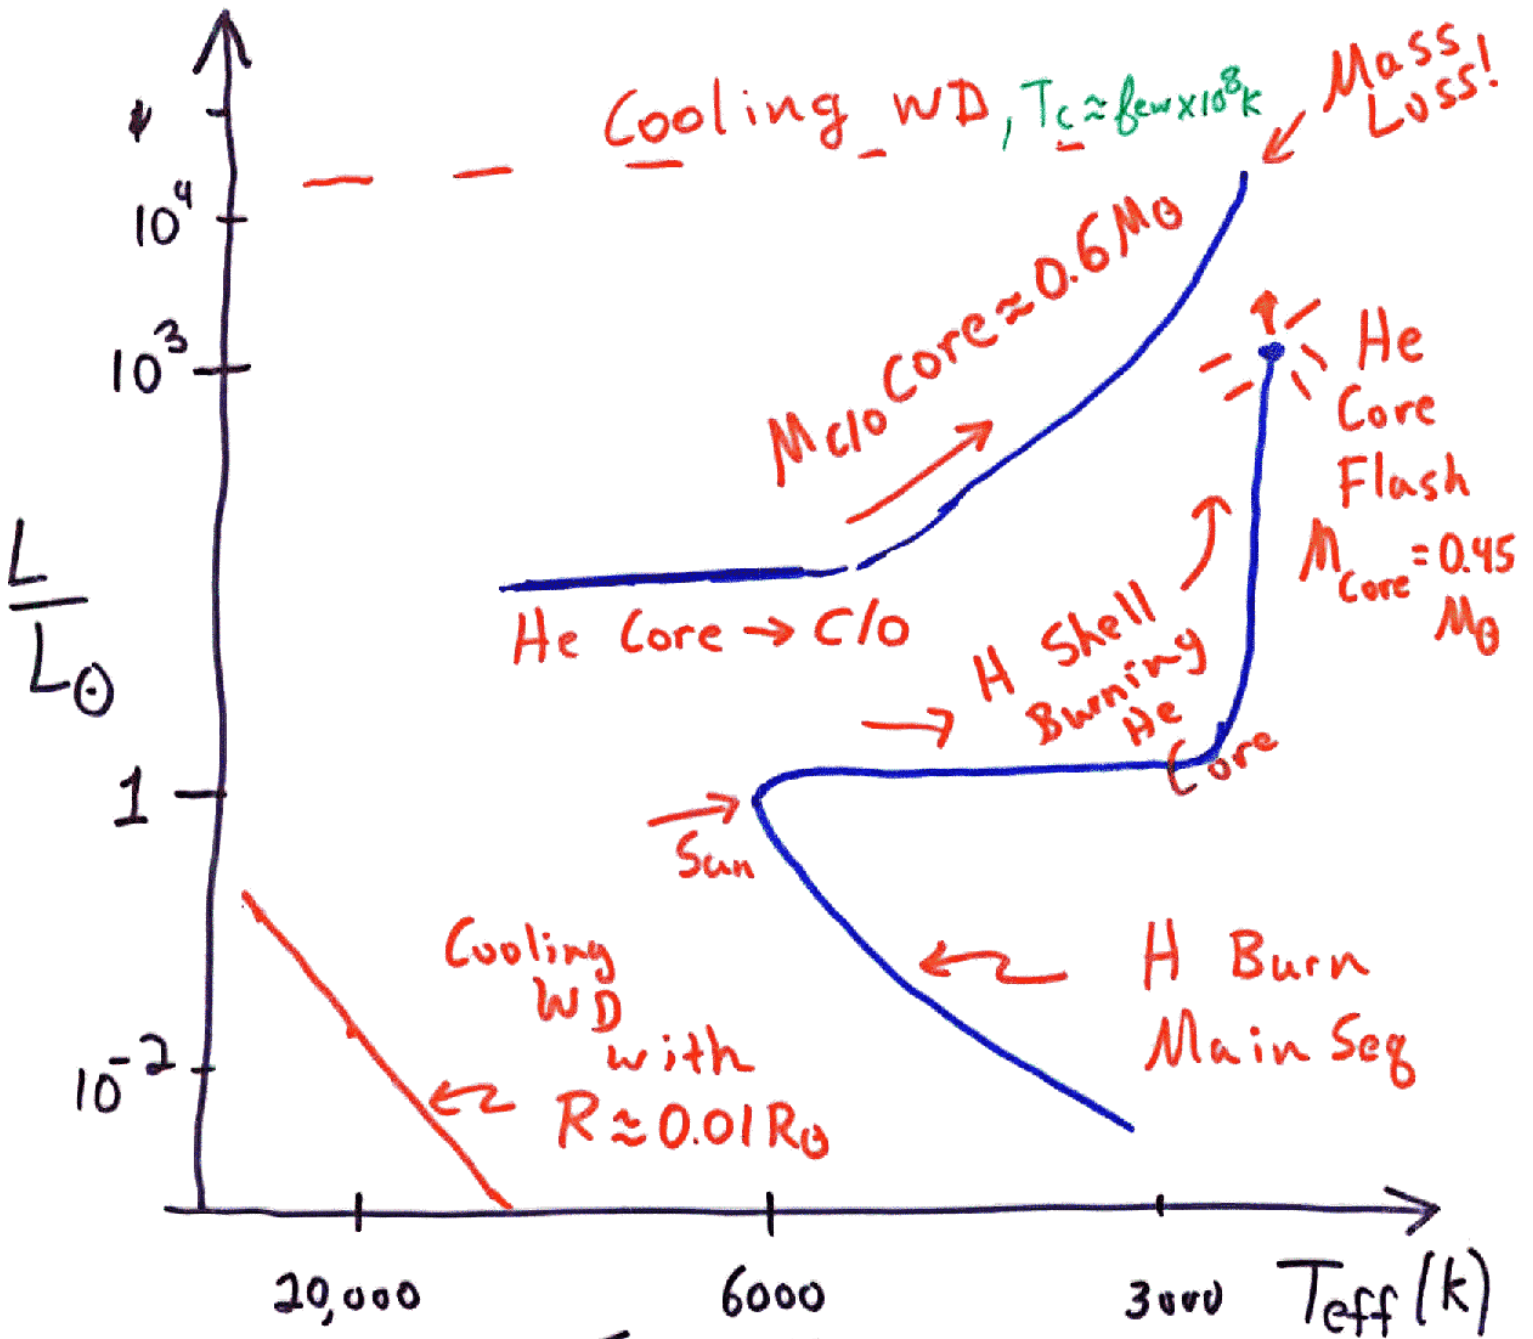 Cooling WD, Tc≈few×10⁸K
Mass
Loss!
10⁴
10³
L
L⊙
1
10⁻²
M C/O Core ≈ 0.6 M⊙
He
Core
Flash
M Core = 0.45
M⊙
He Core → C/O
H Shell
Burning
He
Core
Sun
Cooling
WD
with
R ≈ 0.01 R⊙
H Burn
Main Seq
20,000 6000 3000 Teff (K)